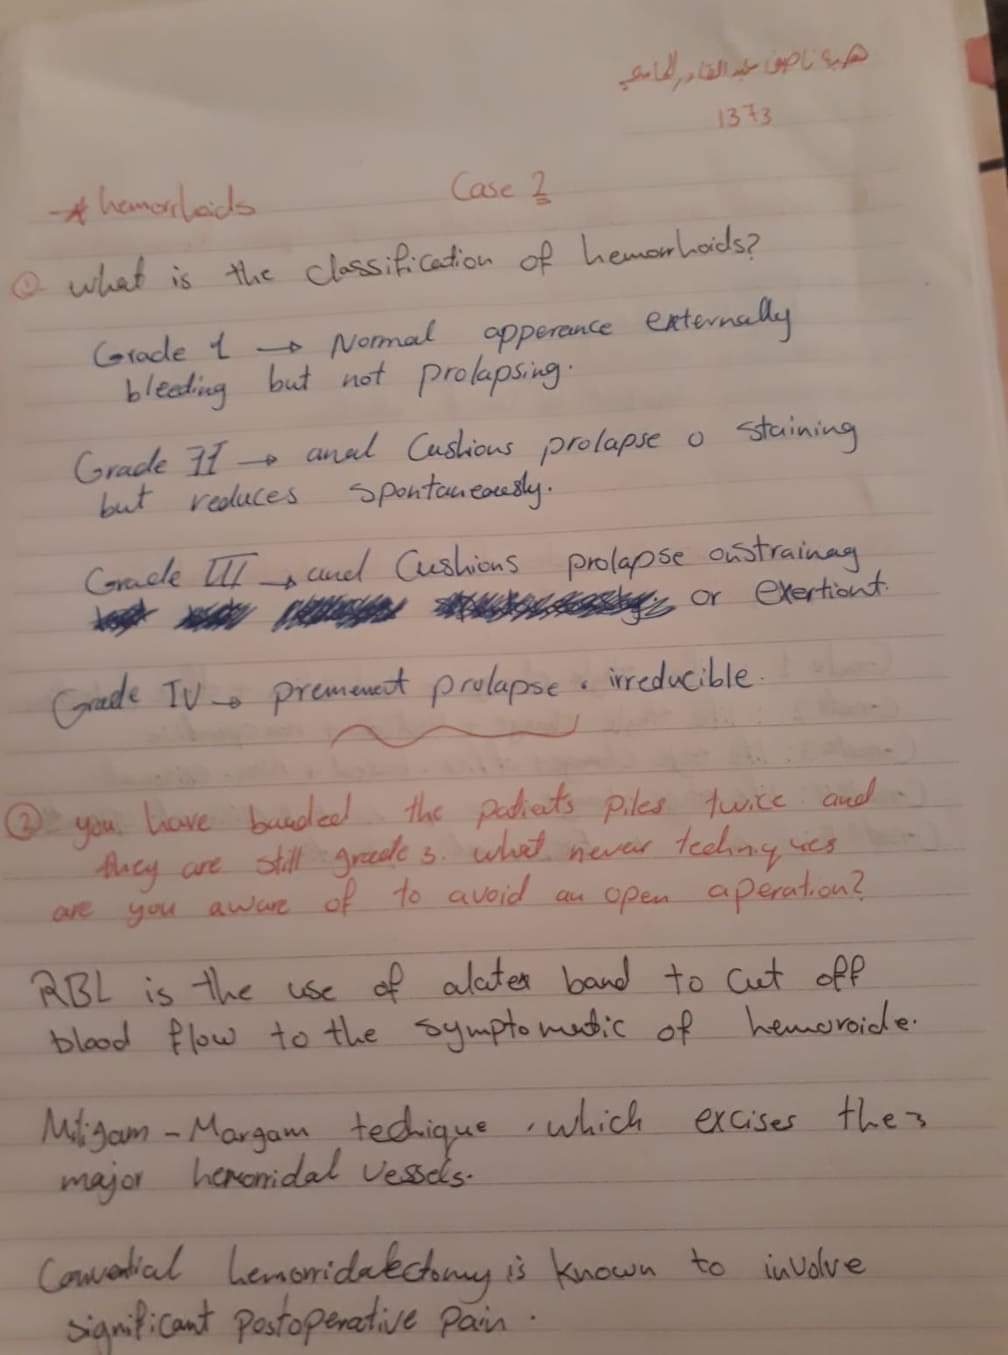 هبة ناصف عبد القادر
1373
Case 2
hemorrhoids
① what is the classification of hemorrhoids?
Grade 1 → Normal apperance externally
bleeding but not prolapsing.
Grade II → anal Cushions prolapse o staining
but reduces spontaneously.
Grade III → and Cushions prolapse onstrainag
or exertiont.
Grade IV → premenent prolapse . irreducible.
② you have banded the patients piles twice and
they are still grade 3. what never techniques
are you aware of to avoid an open aperation?
RBL is the use of alatex band to cut off
blood flow to the symptomatic of hemoroide.
Miligam - Margam techique , which excises the 3
major hemorridal vessels.
Convential hemorridalectomy is known to involve
significant postoperative pain .